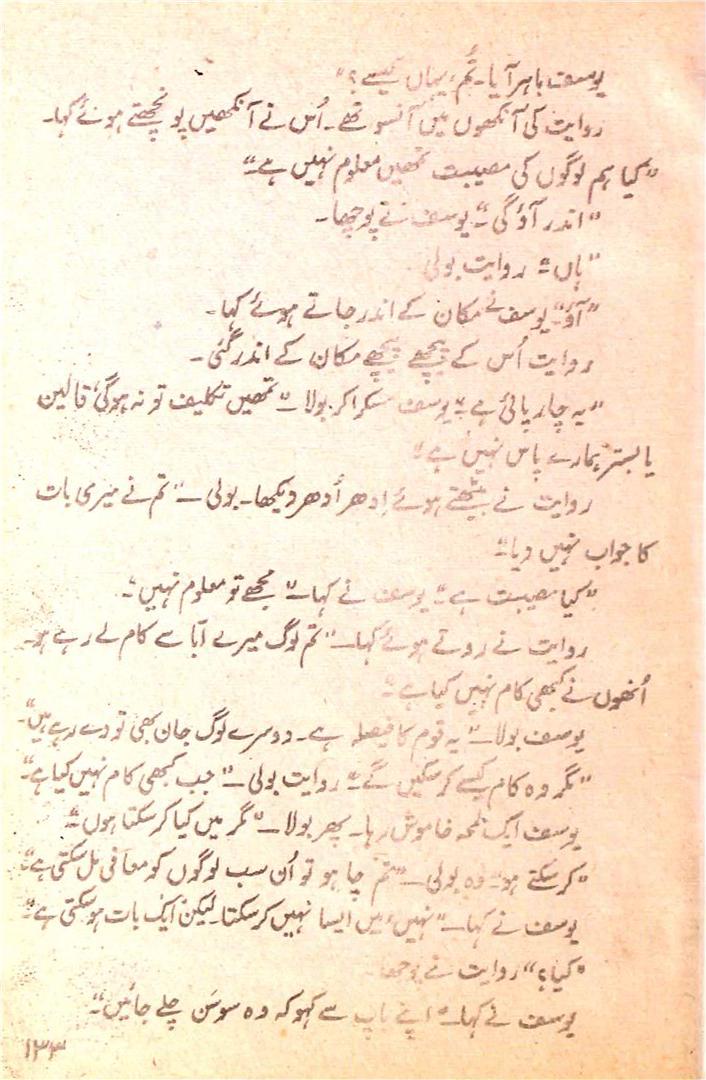 یوسف باہر آیا۔ تُم، یہاں کیسے؟“
روایت کی آنکھوں میں آنسو تھے۔ اُس نے آنکھیں پونچھتے ہوئے کہا۔
”کیا ہم لوگوں کی مصیبت تمھیں معلوم نہیں ہے۔“
”اندر آؤ گی۔“ یوسف نے پوچھا۔
”ہاں۔“ روایت بولی
”آؤ۔“ یوسف نے مکان کے اندر جاتے ہوئے کہا۔
روایت اُس کے پیچھے پیچھے مکان کے اندر گئی۔
”یہ چارپائی ہے۔“ یوسف مسکرا کر بولا۔ ”تمھیں تکلیف تو نہ ہوگی، قالین
یا بستر ہمارے پاس نہیں ہے“
روایت نے بیٹھتے ہوئے اِدھر اُدھر دیکھا۔ بولی۔ ”تم نے میری بات
کا جواب نہیں دیا۔“
”کیا مصیبت ہے۔“ یوسف نے کہا۔ ”مجھے تو معلوم نہیں“۔
روایت نے روتے ہوئے کہا۔ ”تم لوگ میرے ابّا سے کام لے رہے ہو۔
اُنھوں نے کبھی کام نہیں کیا ہے۔“
یوسف بولا۔ ”یہ قوم کا فیصلہ ہے۔ دوسرے لوگ جان بھی تو دے رہے ہیں“۔
”مگر وہ کام کیسے کر سکیں گے۔“ روایت بولی۔ ”جب کبھی کام نہیں کیا ہے۔“
یوسف ایک لمحہ خاموش رہا۔ پھر بولا۔ ”مگر میں کیا کر سکتا ہوں۔“
”کر سکتے ہو۔“ وہ بولی۔ ”تم چاہو تو اُن سب لوگوں کو معافی مل سکتی ہے۔“
یوسف نے کہا۔ ”نہیں، میں ایسا نہیں کر سکتا۔ لیکن ایک بات ہو سکتی ہے۔“
”کیا؟“ روایت نے پوچھا۔
یوسف نے کہا۔ ”اپنے باپ سے کہو کہ وہ سوسَن چلے جائیں“۔
۱۳۳